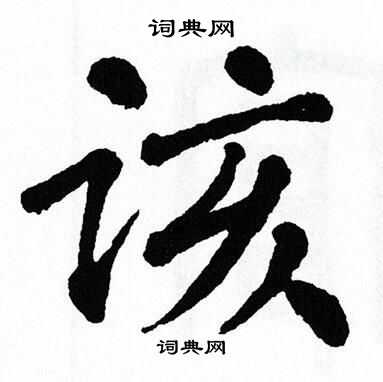 词典网
该
词典网